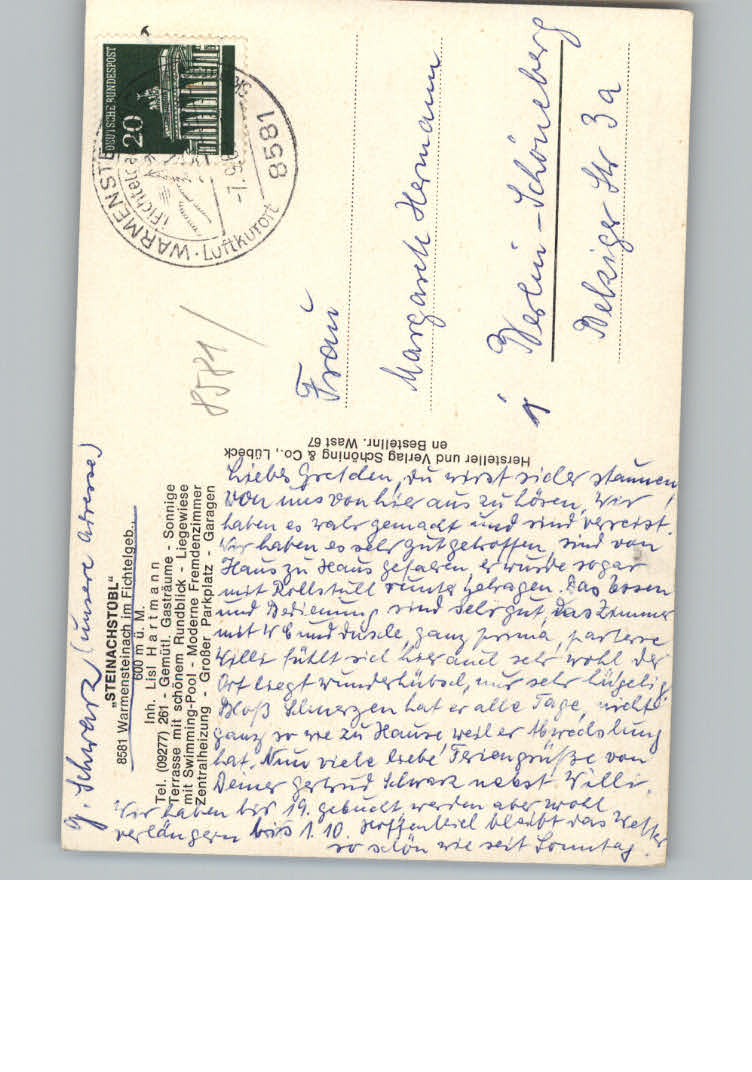 G. Schwarz (unsere Adresse)
„STEINACHSTÜBL"
8581 Warmensteinach im Fichtelgeb.,
600 m ü. M.
Inh. Lisl Hartmann
Tel. (09277) 261 - Gemütl. Gasträume - Sonnige
Terrasse mit schönem Rundblick - Liegewiese
mit Swimming-Pool - Moderne Fremdenzimmer
Zentralheizung - Großer Parkplatz - Garagen
Liebes Gretchen, du wirst sicher staunen,
von uns von hier aus zu hören, Wir
haben es wahr gemacht und sind verreist.
Wir haben es sehr gut getroffen, sind von
Haus zu Haus gefahren er wurde sogar
mit Rollstuhl runter getragen. Das Essen
und Bedienung sind sehr gut, das Zimmer
mit WC und Dusche, ganz prima, parterre
Willi fühlt sich hier auch sehr wohl der
Ort liegt wunderhübsch, nur sehr hügelig.
Bloß Schmerzen hat er alle Tage, nicht
ganz so wie zu Hause weil er Abwechslung
hat. Nun viele liebe Feriengrüße von
Deiner Gertrud Schwarz nebst Willi.
Wir haben bis 19. gebucht werden aber wohl
verlängern bis 1.10. Hoffentlich bleibt das Wetter
so schön wie seit Sonntag.
Hersteller und Verlag Schöning & Co., Lübeck
en Bestellnr. Wast 67
DEUTSCHE BUNDESPOST
20
8581 WARMENSTE
Luftkurort
8581
Frau
Margarete Hermann
1 Berlin-Schöneberg
Belziger Str 3a